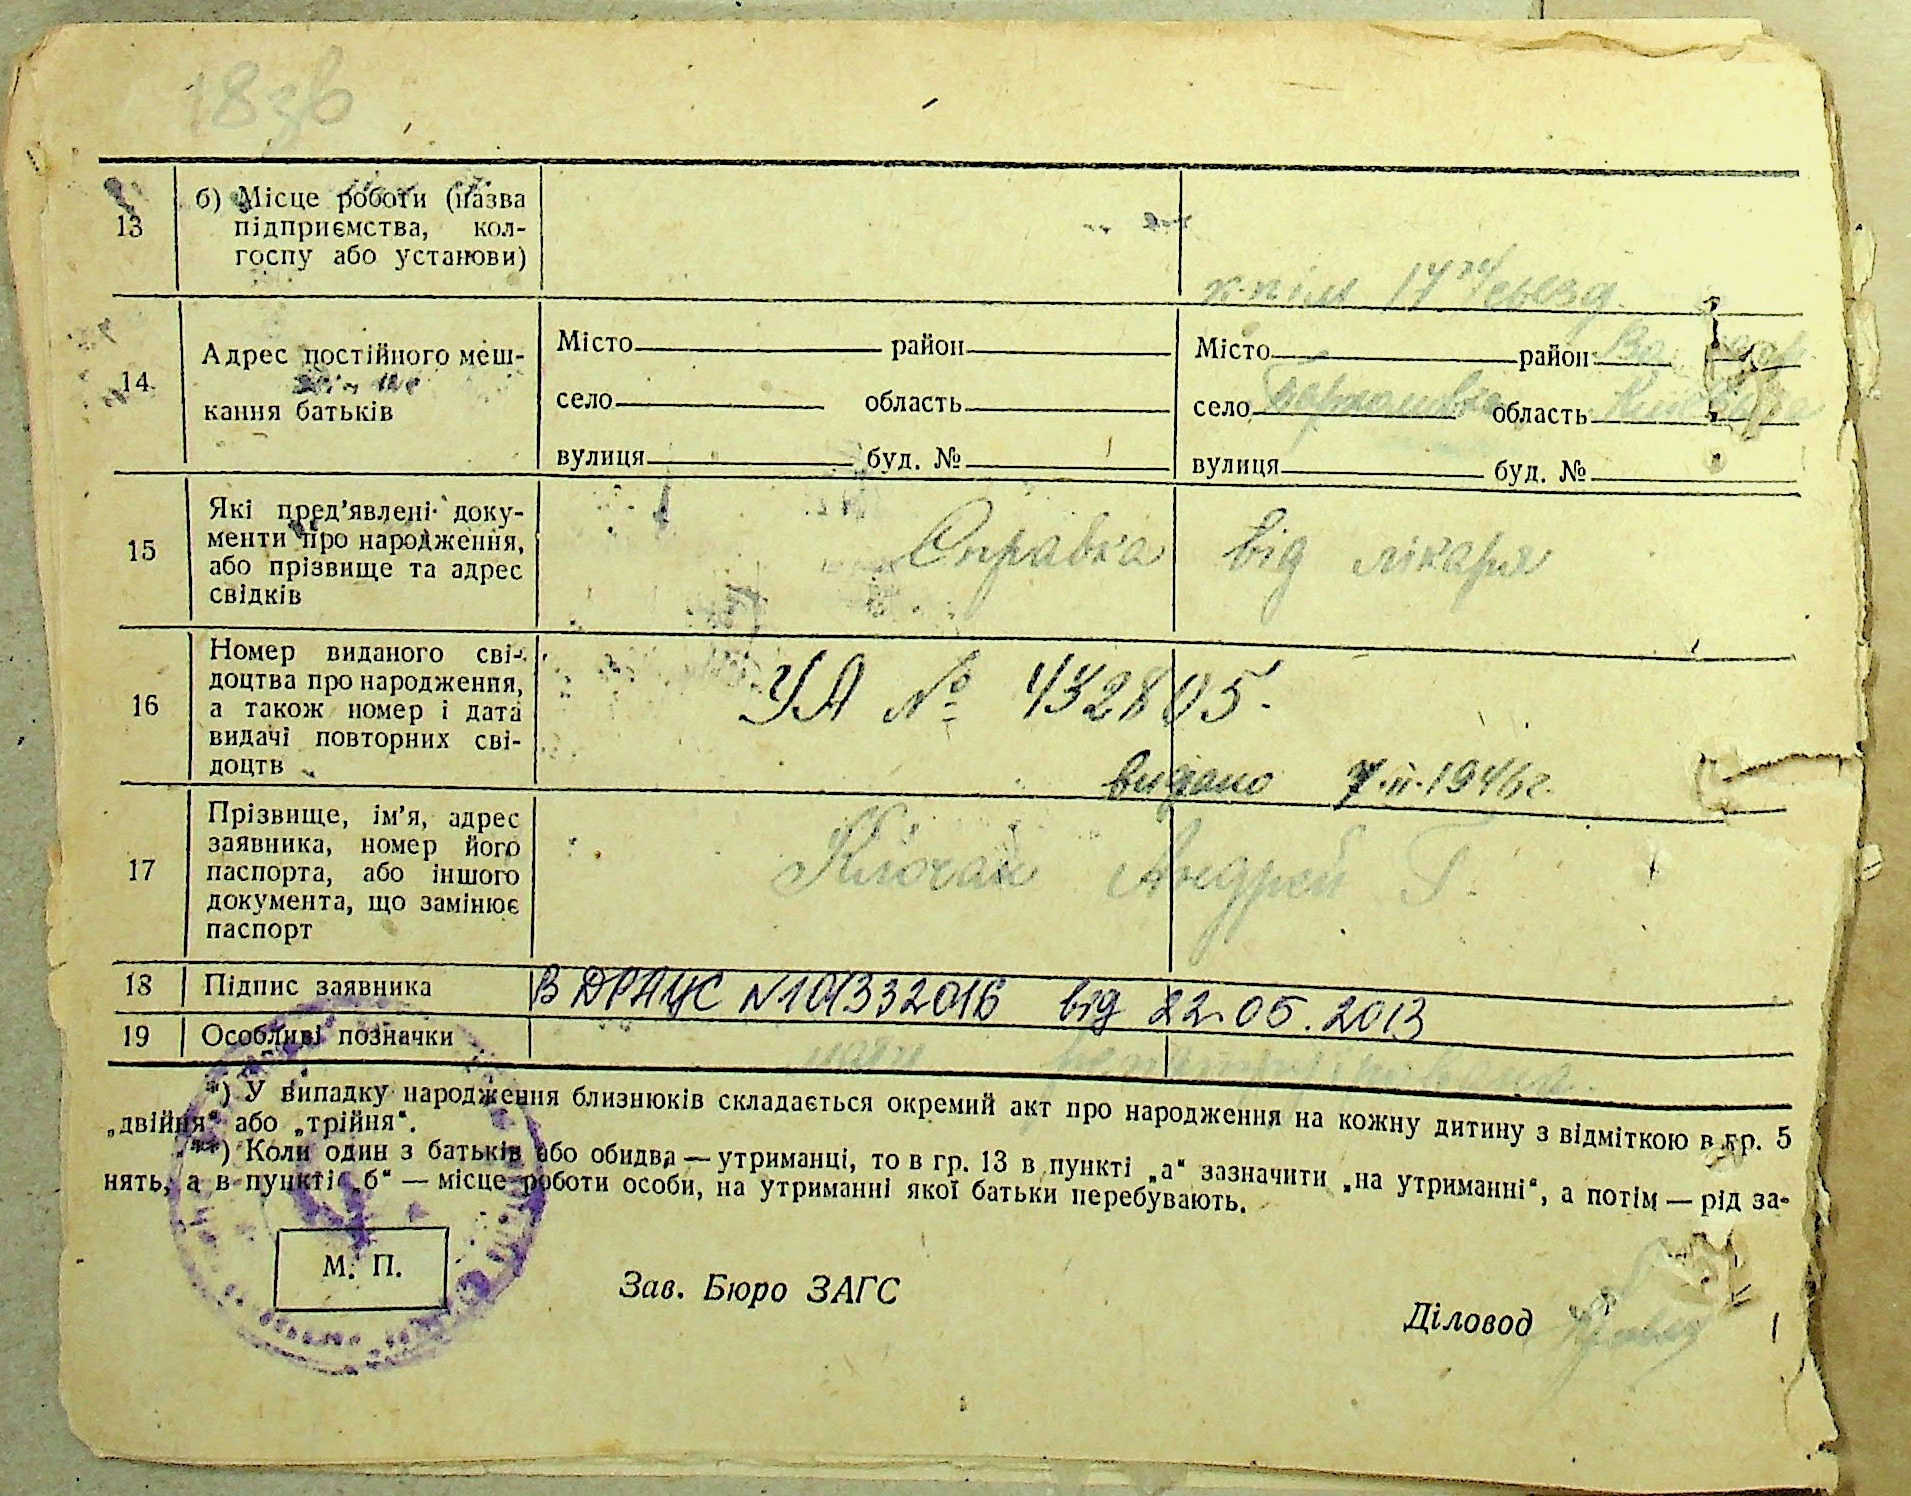 18зв
13
б) Місце роботи (назва
підприємства, кол-
госпу або установи)
14
Адрес постійного меш-
кання батьків
Місто район
село область
вулиця буд. №
Місто район
село область
вулиця буд. №
15
Які пред'явлені доку-
менти про народження,
або прізвище та адрес
свідків
Справка від лікаря
16
Номер виданого сві-
доцтва про народження,
а також номер і дата
видачі повторних сві-
доцтв
УА № 432805.
видано 7.II.1946г.
17
Прізвище, ім'я, адрес
заявника, номер його
паспорта, або іншого
документа, що замінює
паспорт
Клочан Андрей Г.
18 Підпис заявника
В ДРАЦС N101332016 від 22.05.2013
19 Особливі позначки
мати
*) У випадку народження близнюків складається окремий акт про народження на кожну дитину з відміткою в гр. 5
„двійня“ або „трійня“.
**) Коли один з батьків або обидва — утриманці, то в гр. 13 в пункті „а“ зазначити „на утриманні“, а потім — рід за-
нять, а в пункті „б“ — місце роботи особи, на утриманні якої батьки перебувають.
М. П.
Зав. Бюро ЗАГС
Діловод